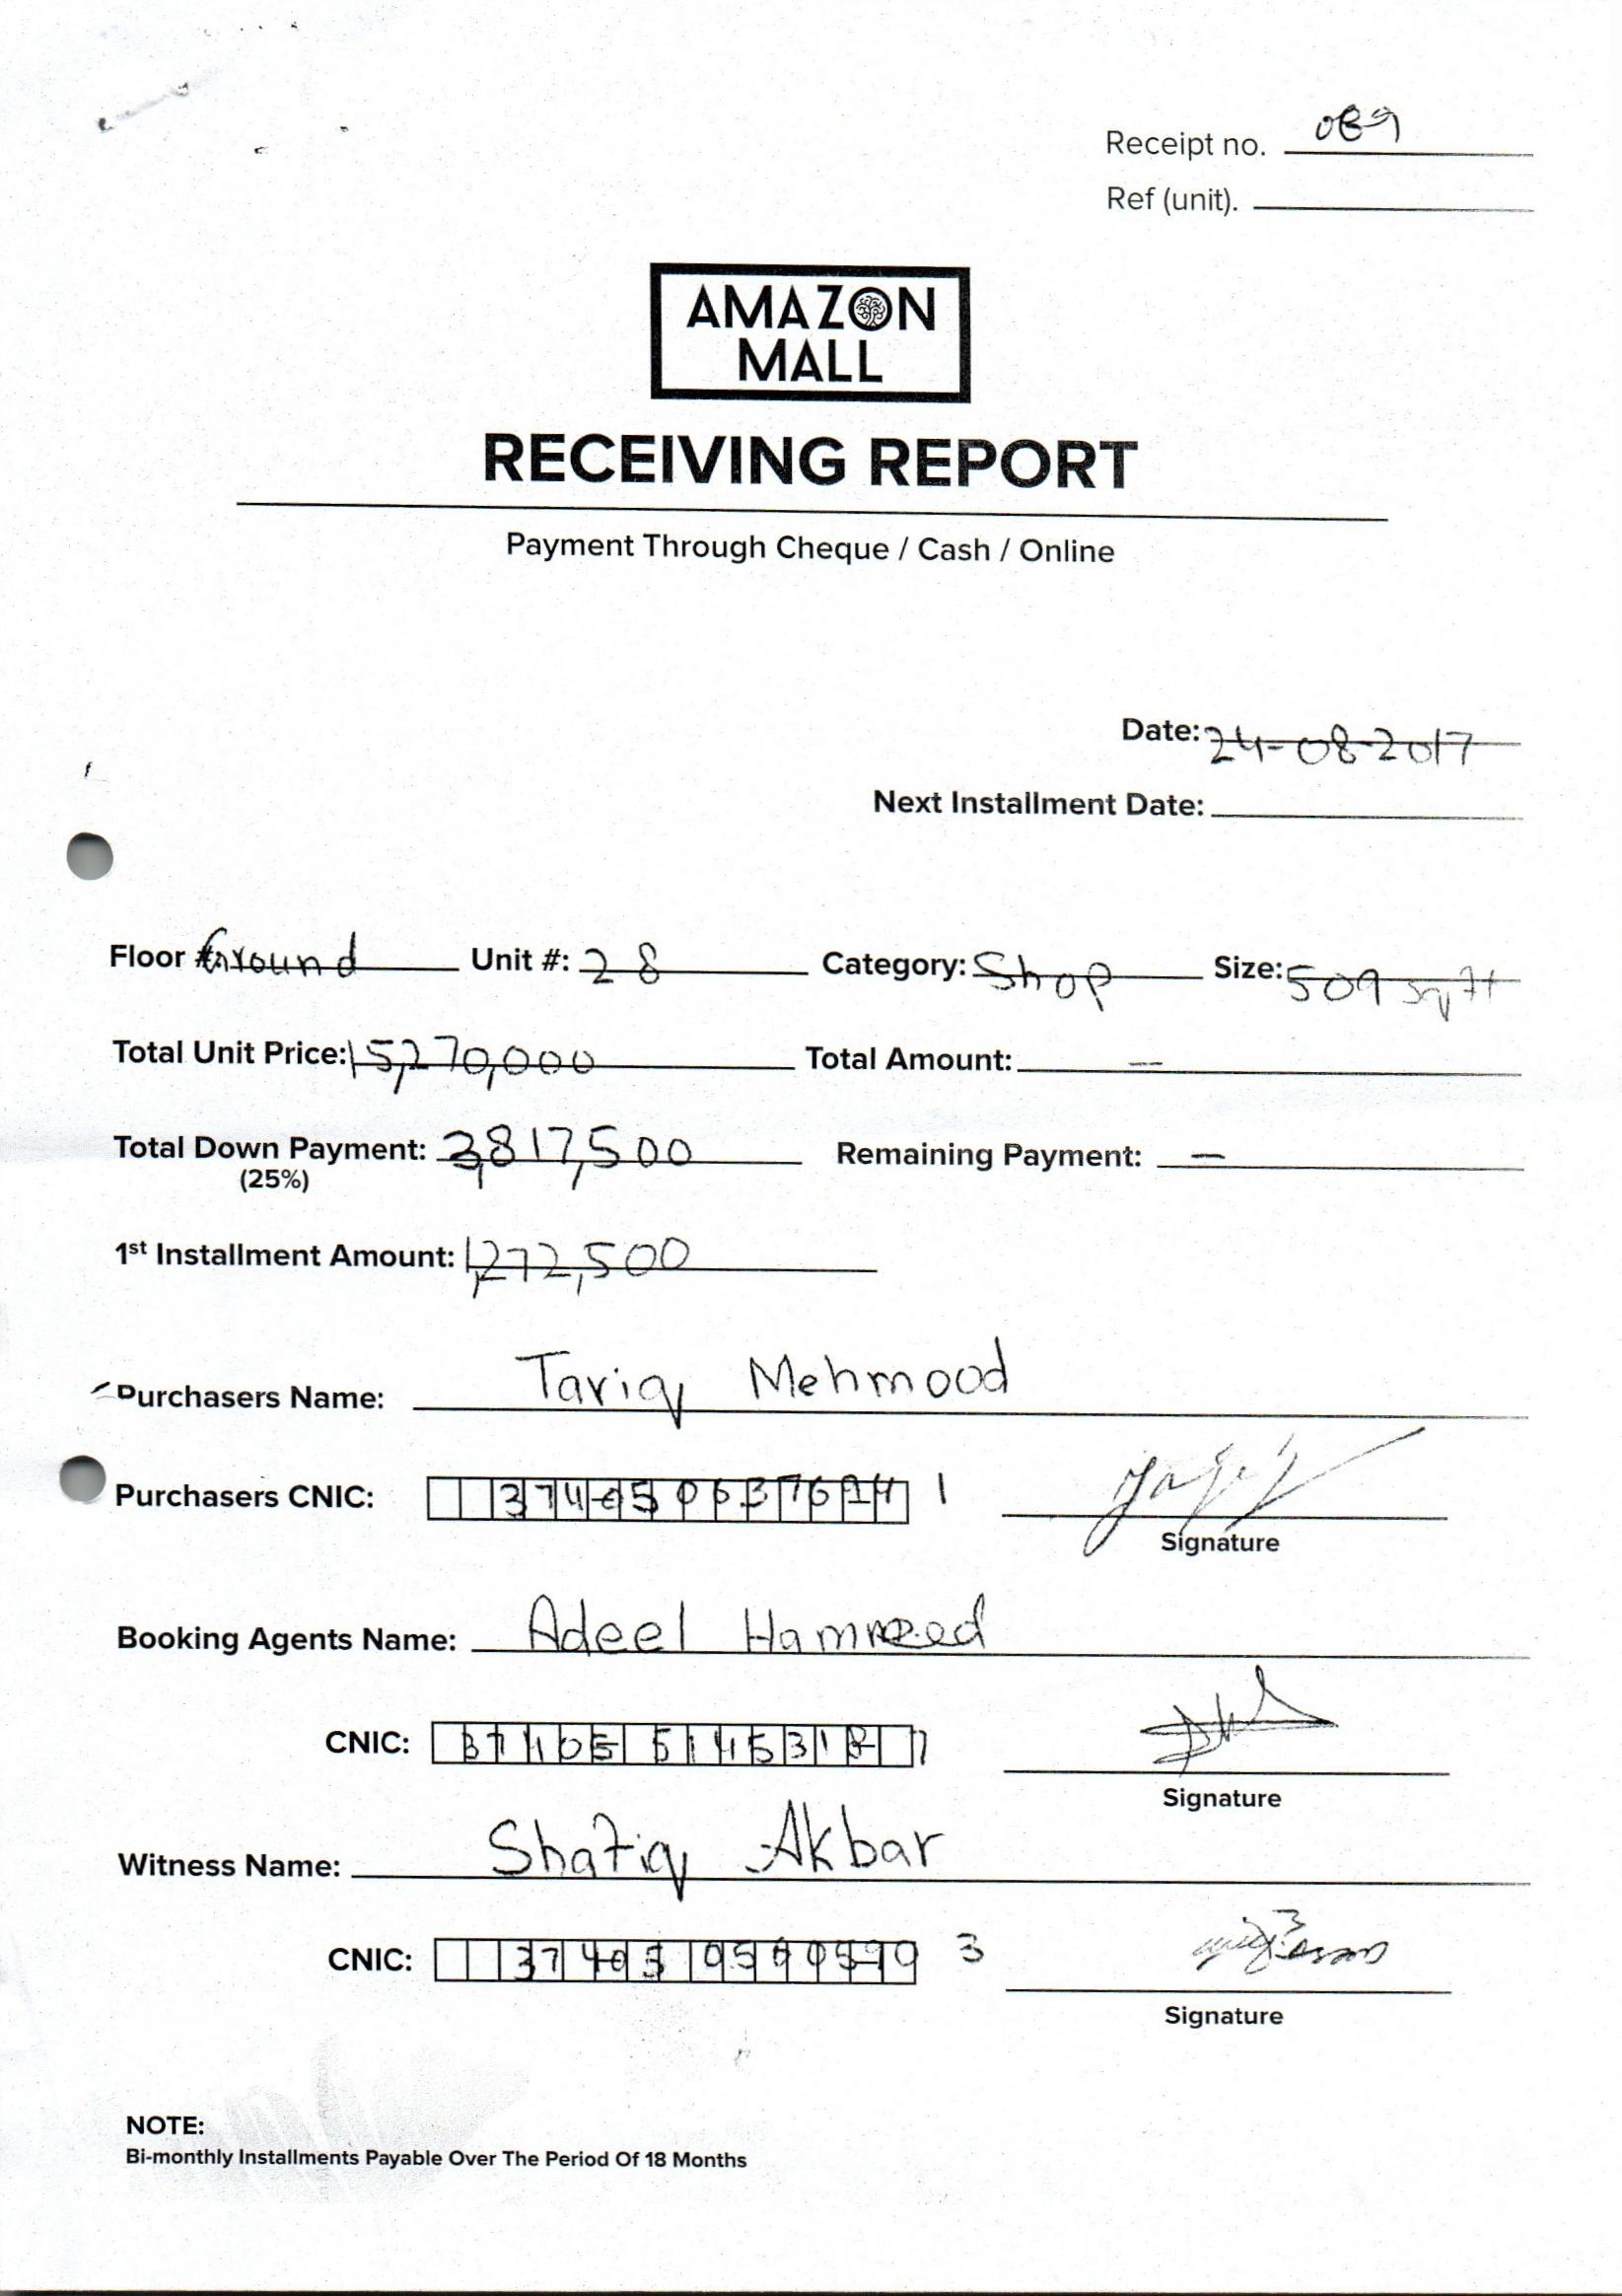 Receipt no.
Ref (unit).
AMAZON
MALL
RECEIVING REPORT
Payment Through Cheque / Cash / Online
Date: 24-08-2017
Next Installment Date:
Floor #: Ground Unit #: 28 Category: Shop Size: 509 sqft
Total Unit Price: 15,270,000 Total Amount: —
Total Down Payment: 3,817,500 Remaining Payment: —
(25%)
1st Installment Amount: 1,272,500
Purchasers Name: Tariq Mehmood
Purchasers CNIC:
Signature
Booking Agents Name: Adeel Hameed
CNIC:
Signature
Witness Name: Shafiq Akbar
CNIC:
Signature
NOTE:
Bi-monthly Installments Payable Over The Period Of 18 Months